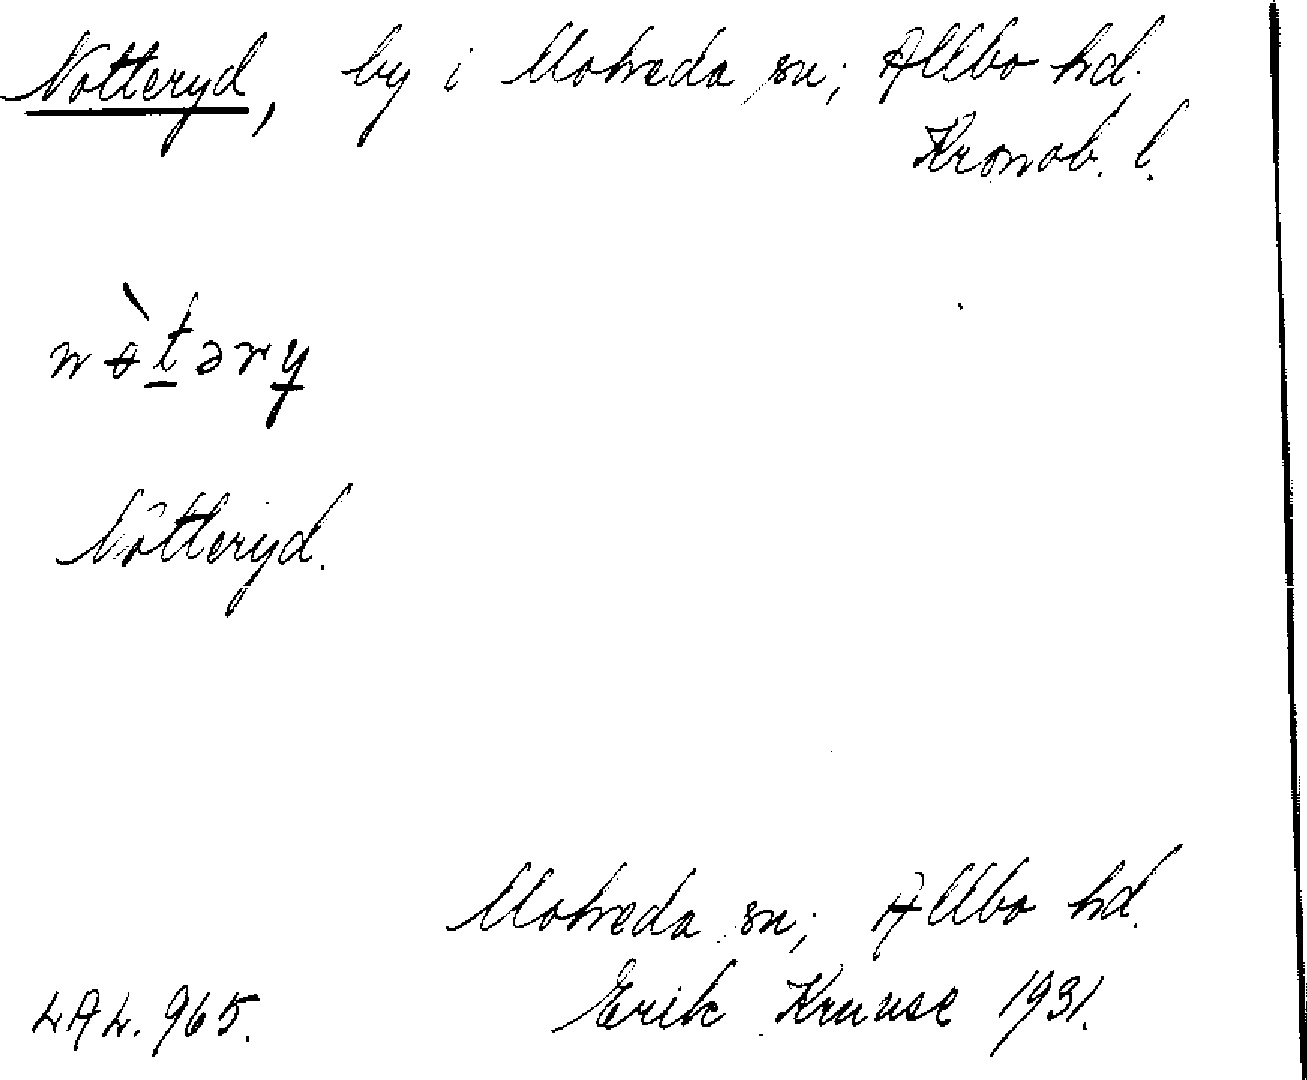 Notteryd, by i Moheda sn; Allbo hd.
Kronob. l.
nɵ̀təry
Nôtteryd.
Moheda sn; Allbo hd.
LAL. 965. Erik Kruuse 1931.